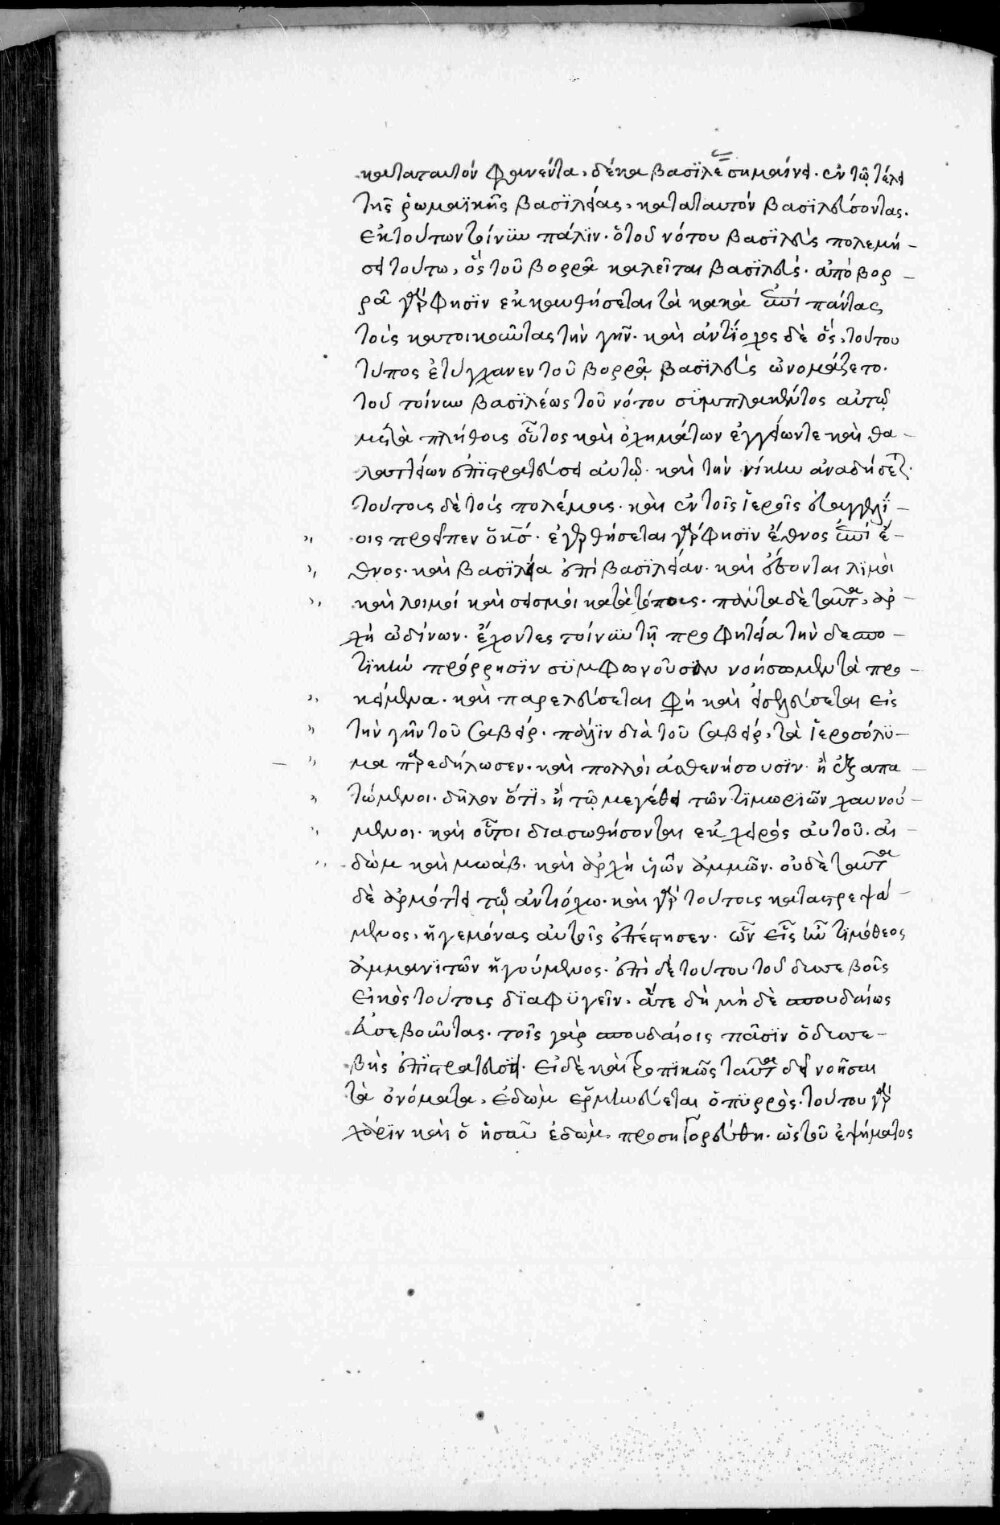 κατὰ ταυτὸν φανέντα, δέκα βασιλεῖς σημαίνει· ἐν τῷ τέλει
τῆς ῥωμαϊκῆς βασιλείας, κατὰ ταυτὸν βασιλεύσοντας.
ἐκ τούτων τοίνυν πάλιν· ὁ τοῦ νότου βασιλεὺς πολεμή-
σει τούτω, ὃς τοῦ βορρᾶ καλεῖται βασιλεύς· ἀπὸ βορ-
ρᾶ γάρ φησὶν ἐκκαυθήσεται τὰ κακὰ ἐπὶ πάντας
τοὺς κατοικοῦντας τὴν γῆν· καὶ ἀντίοχος δὲ ὃς, τούτου
τύπος ἐτύγχανεν τοῦ βορρᾶ βασιλεὺς ὠνομάζετο.
τοῦ τοίνυν βασιλέως τοῦ νότου συμπλακέντος αὐτῷ
μετὰ πλήθους οὗτος καὶ ὀχημάτων ἐγγείων τε καὶ θα-
λαττίων ἐπιστρατεύσει αὐτῷ· καὶ τὴν νίκην ἀναδήσεται·
τούτους δὲ τοὺς πολέμους· καὶ ἐν τοῖς ἱεροῖς εὐαγγελί-
οις προεῖπεν ὁ κ̅ς̅· ἐγερθήσεται γάρ φησὶν ἔθνος ἐπὶ ἔ-
θνος· καὶ βασιλεία ἐπὶ βασιλείαν· καὶ ἔσονται λιμοὶ
καὶ λοιμοὶ καὶ σεισμοὶ κατὰ τόπους· πάντα δὲ ταῦτα, ἀρ-
χὴ ὠδίνων· ἔχοντες τοίνυν τῇ προφητεία τὴν δεσπο-
τικὴν πρόρρησιν συμφωνοῦσαν νοήσωμεν τὰ προ-
κείμενα· καὶ παρελεύσεται φη καὶ εἰσελεύσεται εἰς
τὴν γῆν τοῦ σαβείρ· πάλιν διὰ τοῦ σαβείρ, τὰ ἱεροσόλυ-
μα παρεδήλωσεν· καὶ πολλοὶ ἀσθενήσουσιν· ἢ ἐξαπα-
τώμενοι· δῆλον ὅτι, ἢ τῷ μεγέθει τῶν τιμωριῶν χαυνού-
μενοι· καὶ οὗτοι διασωθήσονται ἐκ χειρὸς αὐτοῦ· αἰ-
δὼμ καὶ μωάβ· καὶ ἀρχὴ υἱῶν ἀμμῶν· οὐδὲ ταῦτα
δὲ ἁρμόττει τῷ ἀντιόχω· καὶ γὰρ τούτους καταστρεψά-
μενος, ἡγεμόνας αὐτοῖς ἐπέστησεν· ὧν εἷς ἦν τιμόθεος
ἀμμανιτῶν ἡγούμενος· ἐπὶ δὲ τούτου τοῦ δυσσεβοῦς
εἰκὸς τούτους διαφυγεῖν, ἅτε δὴ μὴ δὲ σπουδαίως
ἀσεβοῦντας· τοῖς γὰρ σπουδαίοις πᾶσιν ὁ δυσσε-
βὴς ἐπιστρατεύσει· εἰ δὲ καὶ τροπικῶς ταῦτα δεῖ νοῆσαι
τὰ ὀνόματα, ἐδὼμ ἑρμηνεύεται ὁ πυρρὸς· τούτου γὰρ
χάριν καὶ ὁ ἠσαῦ ἐδὼμ προσηγορεύθη· ὡς τοῦ ἐψήματος